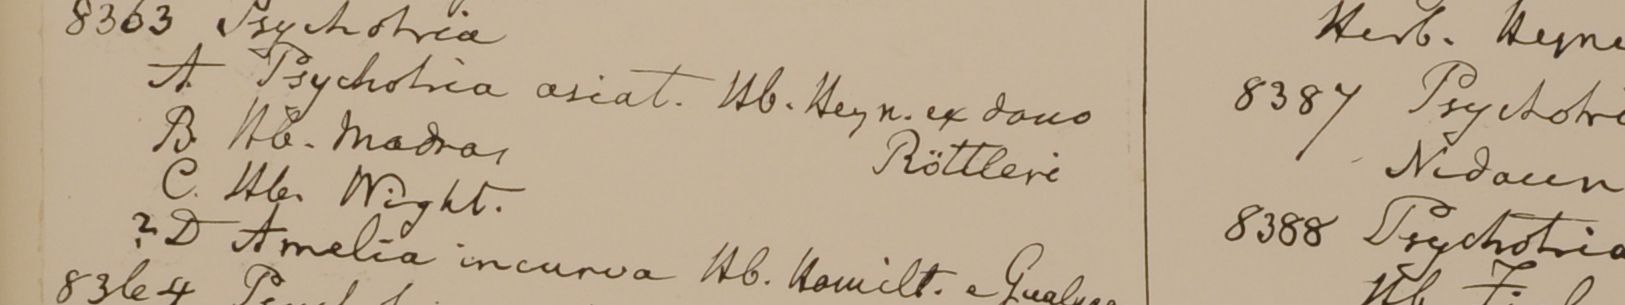 8363 Psychotria
A Psychotria asiat. Hb. Heyn. ex dono
Röttleri
B. Hb. Madras
C. Hb. Wight.
? D Amelia incurva Hb. Hamilt. e
8364
Herb. Heyne
8387 Psychotri
8388 Psychotria
Hb.